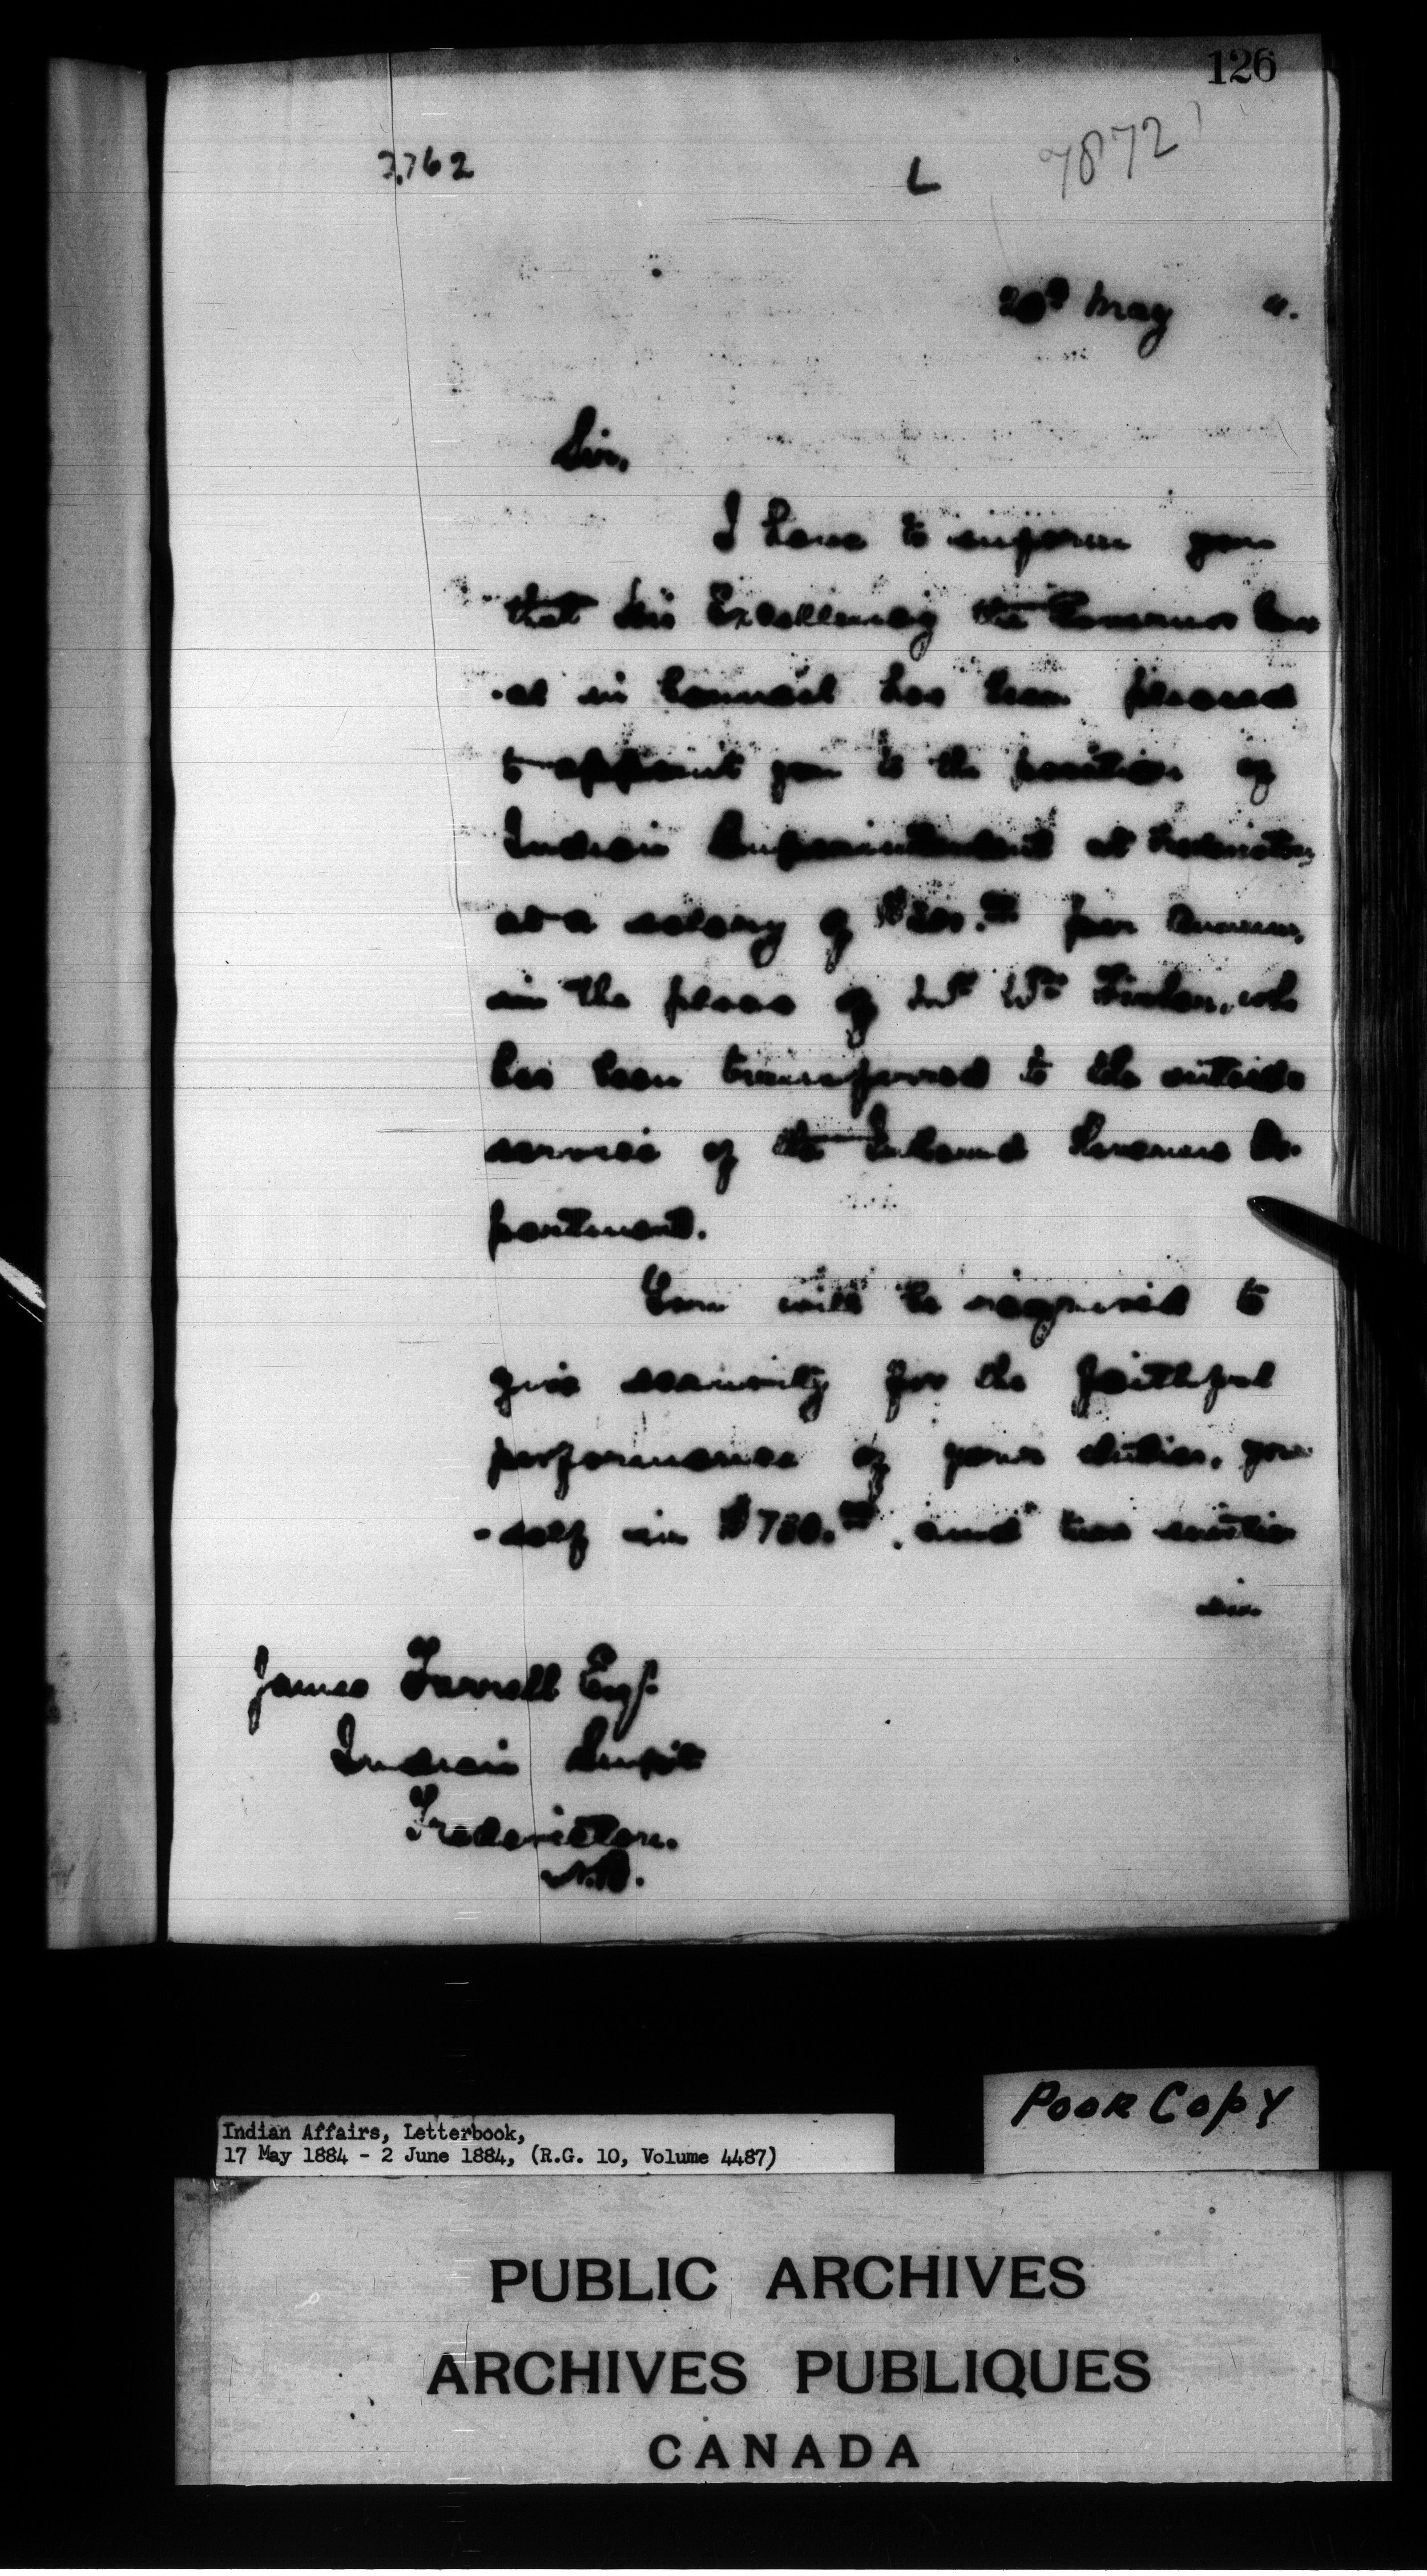 126
3,762
L
7872
May 4.
Sir,
I have to inform you
that His Excellency the Governor Gen
-al in Council has been pleased
to appoint you to the position of
Indian Superintendent at Fredericton,
at a salary of per annum,
in the place of Mr Wm who
has been transferred to the outside
service of the Inland Revenue De-
partment.
You will be required to
give security for the faithful
performance of your duties, your
-self in and two sureties
in
James Farrell Esqr
Indian Supt
Fredericton.
N.B.
POOR COPY
Indian Affairs, Letterbook,
17 May 1884 - 2 June 1884, (R.G. 10, Volume 4487)
PUBLIC ARCHIVES
ARCHIVES PUBLIQUES
CANADA